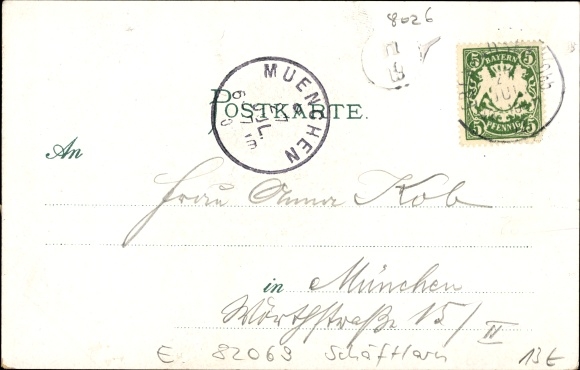 8026
BAYERN
5 5
5 PFENNIG 5
MUENCHEN
POSTKARTE.
An
Frau Anna Kob
in München
Wörthstraße 15/II
E 82069 Schäftlarn
13E